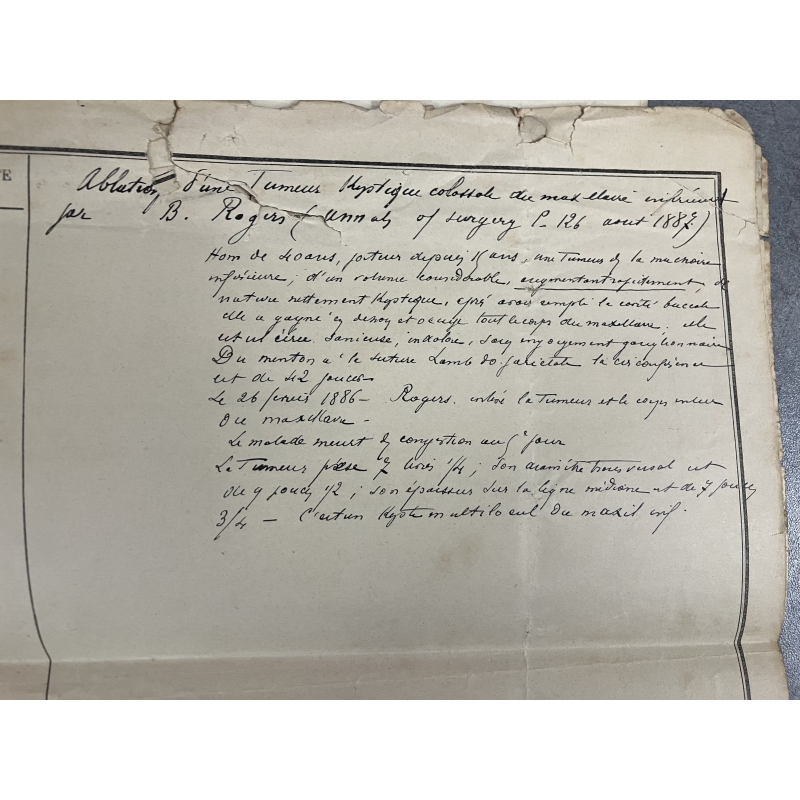 TE
Ablation d'une Tumeur Kystique colossale du maxillaire inférieur
par B. Rogers (Annals of surgery P. 126 aout 1887)
Hom de 40 ans, porteur depuis ans, une Tumeur de la machoire
inférieure; d'un volume considérable, augmentant rapidement de
nature nettement Kystique, après avoir empli la cavité buccale
elle a gagné en dehors et occupe tout le corps du maxillaire. elle
est ulcérée. Sanieuse, indolore, sans engorgement ganglionnaire
Du menton a la suture Lambdo.pariétale la circonférence
est de 42 pouces
Le 26 février 1886 - Rogers. enlève la Tumeur et le corps entier
du maxillaire -
Le malade meurt de congestion au jour
La Tumeur pèse 7 livres 1/4; son diamètre transversal est
de 9 pouces 1/2; son épaisseur sur la ligne médiane est de 7 pouces
3/4 - C'est un Kyste multilocul du maxil inf.